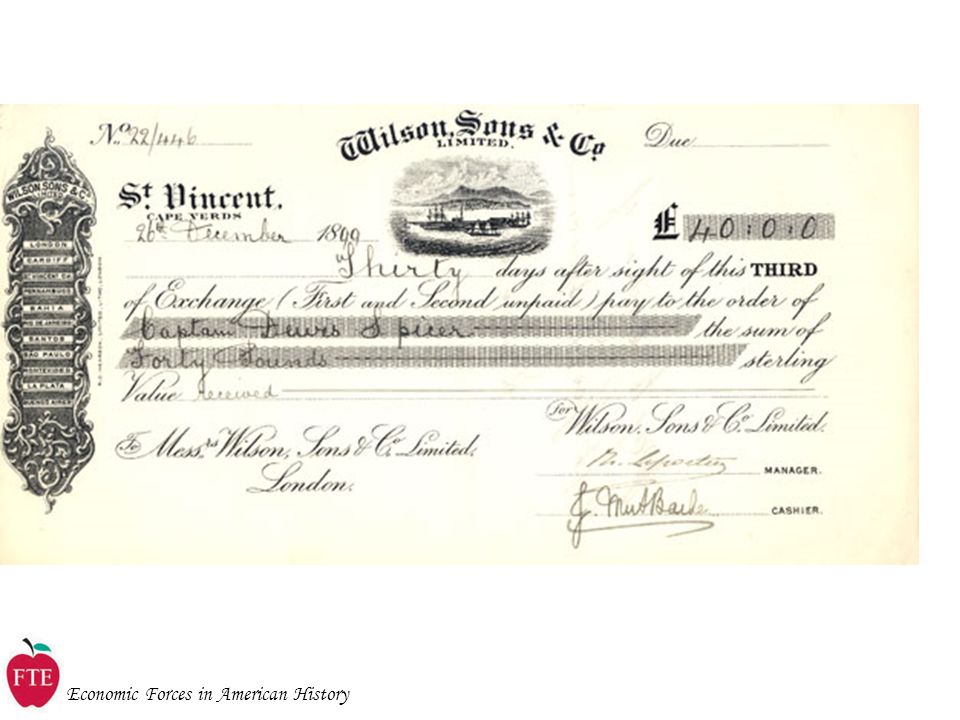 No. 22/446
Wilson, Sons & Co
LIMITED.
Due
St. Vincent,
CAPE VERDS
26th December 1899
£ 40:0:0
Thirty days after sight of this THIRD
of Exchange (First and Second unpaid) pay to the order of
Captain Spicer
the sum of
Forty Pounds
sterling
Value received
To Messrs Wilson, Sons & Co. Limited,
London.
for Wilson, Sons & Co. Limited.
MANAGER.
CASHIER.
WILSON, SONS & Co
LIMITED
LONDON
CARDIFF
ST VINCENT, C.V.
PERNAMBUCO
BAHIA
RIO DE JANEIRO
SANTOS
SAO PAULO
MONTEVIDEO
LA PLATA
BUENOS AIRES
FTE
Economic Forces in American History